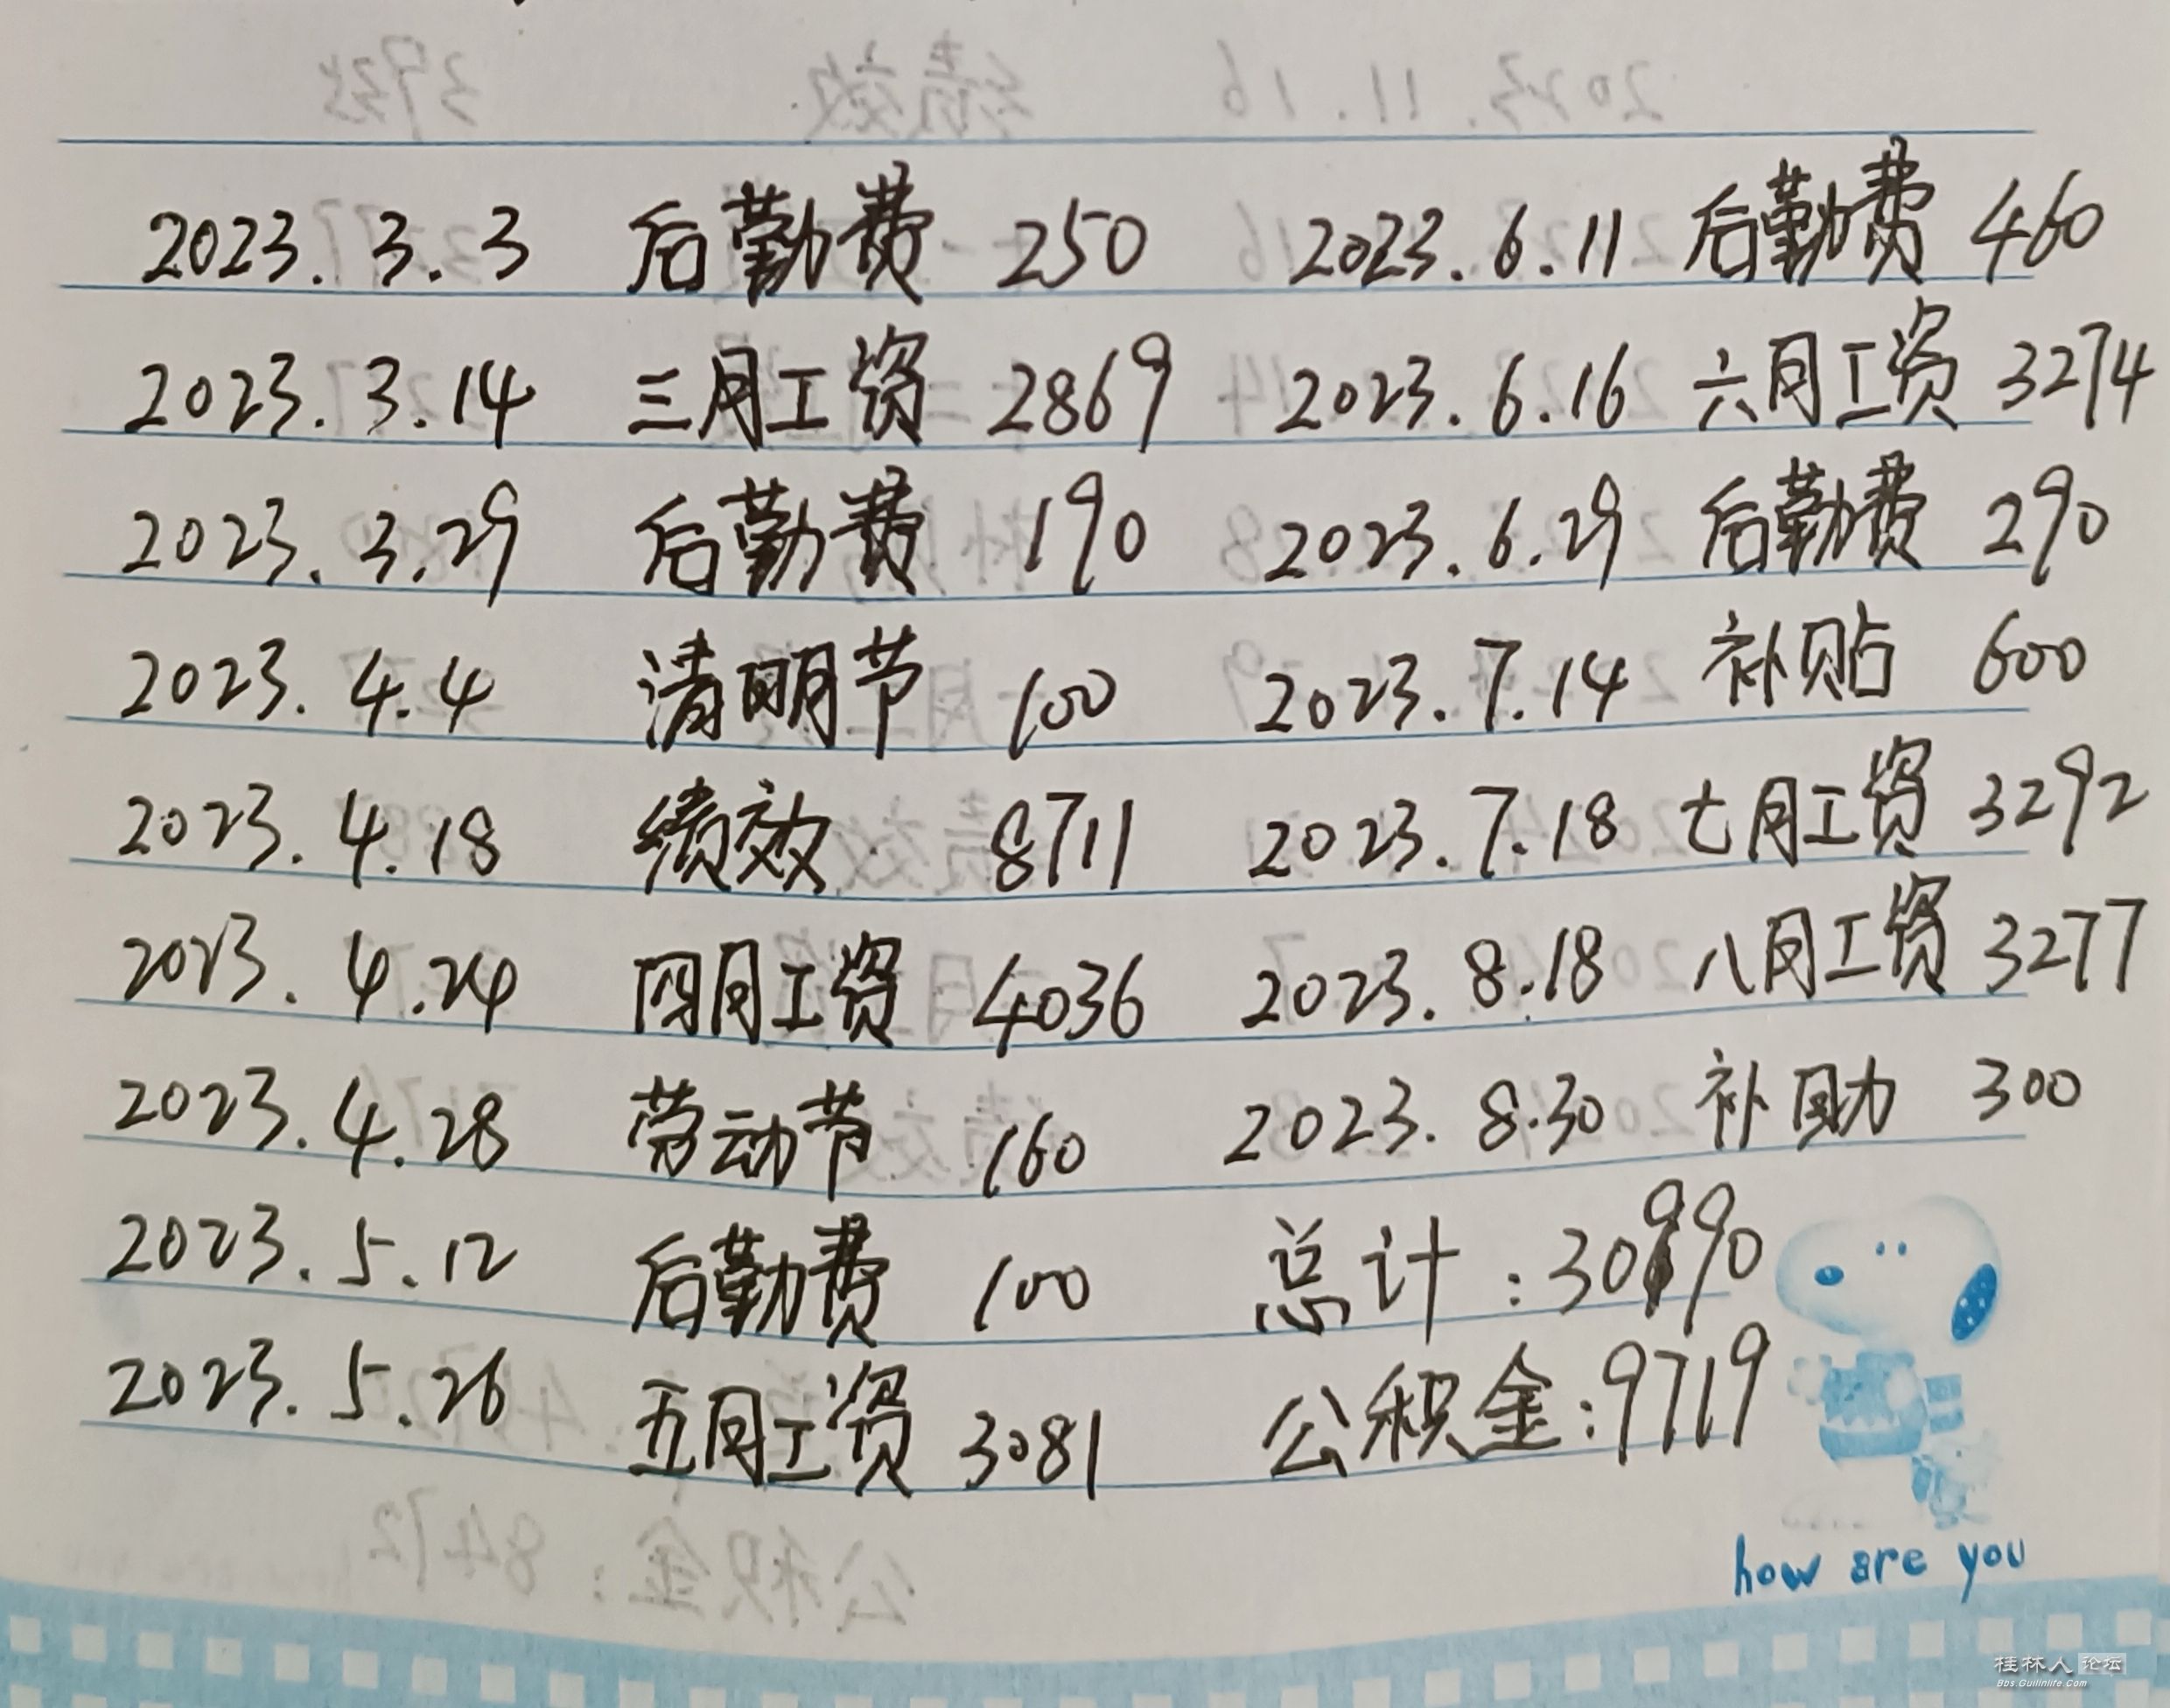 2023.3.3 后勤费 250 2023.6.11 后勤费 460
2023.3.14 三月工资 2869 2023.6.16 六月工资 3274
2023.3.29 后勤费 190 2023.6.29 后勤费 290
2023.4.4 清明节 100 2023.7.14 补贴 600
2023.4.18 绩效 8711 2023.7.18 七月工资 3292
2023.4.24 四月工资 4036 2023.8.18 八月工资 3277
2023.4.28 劳动节 160 2023.8.30 补助 300
2023.5.12 后勤费 100 总计:30990
2023.5.26 五月工资 3081 公积金:9719
公积金:8472
how are you
桂林人论坛
Bbs.Guilinlife.Com